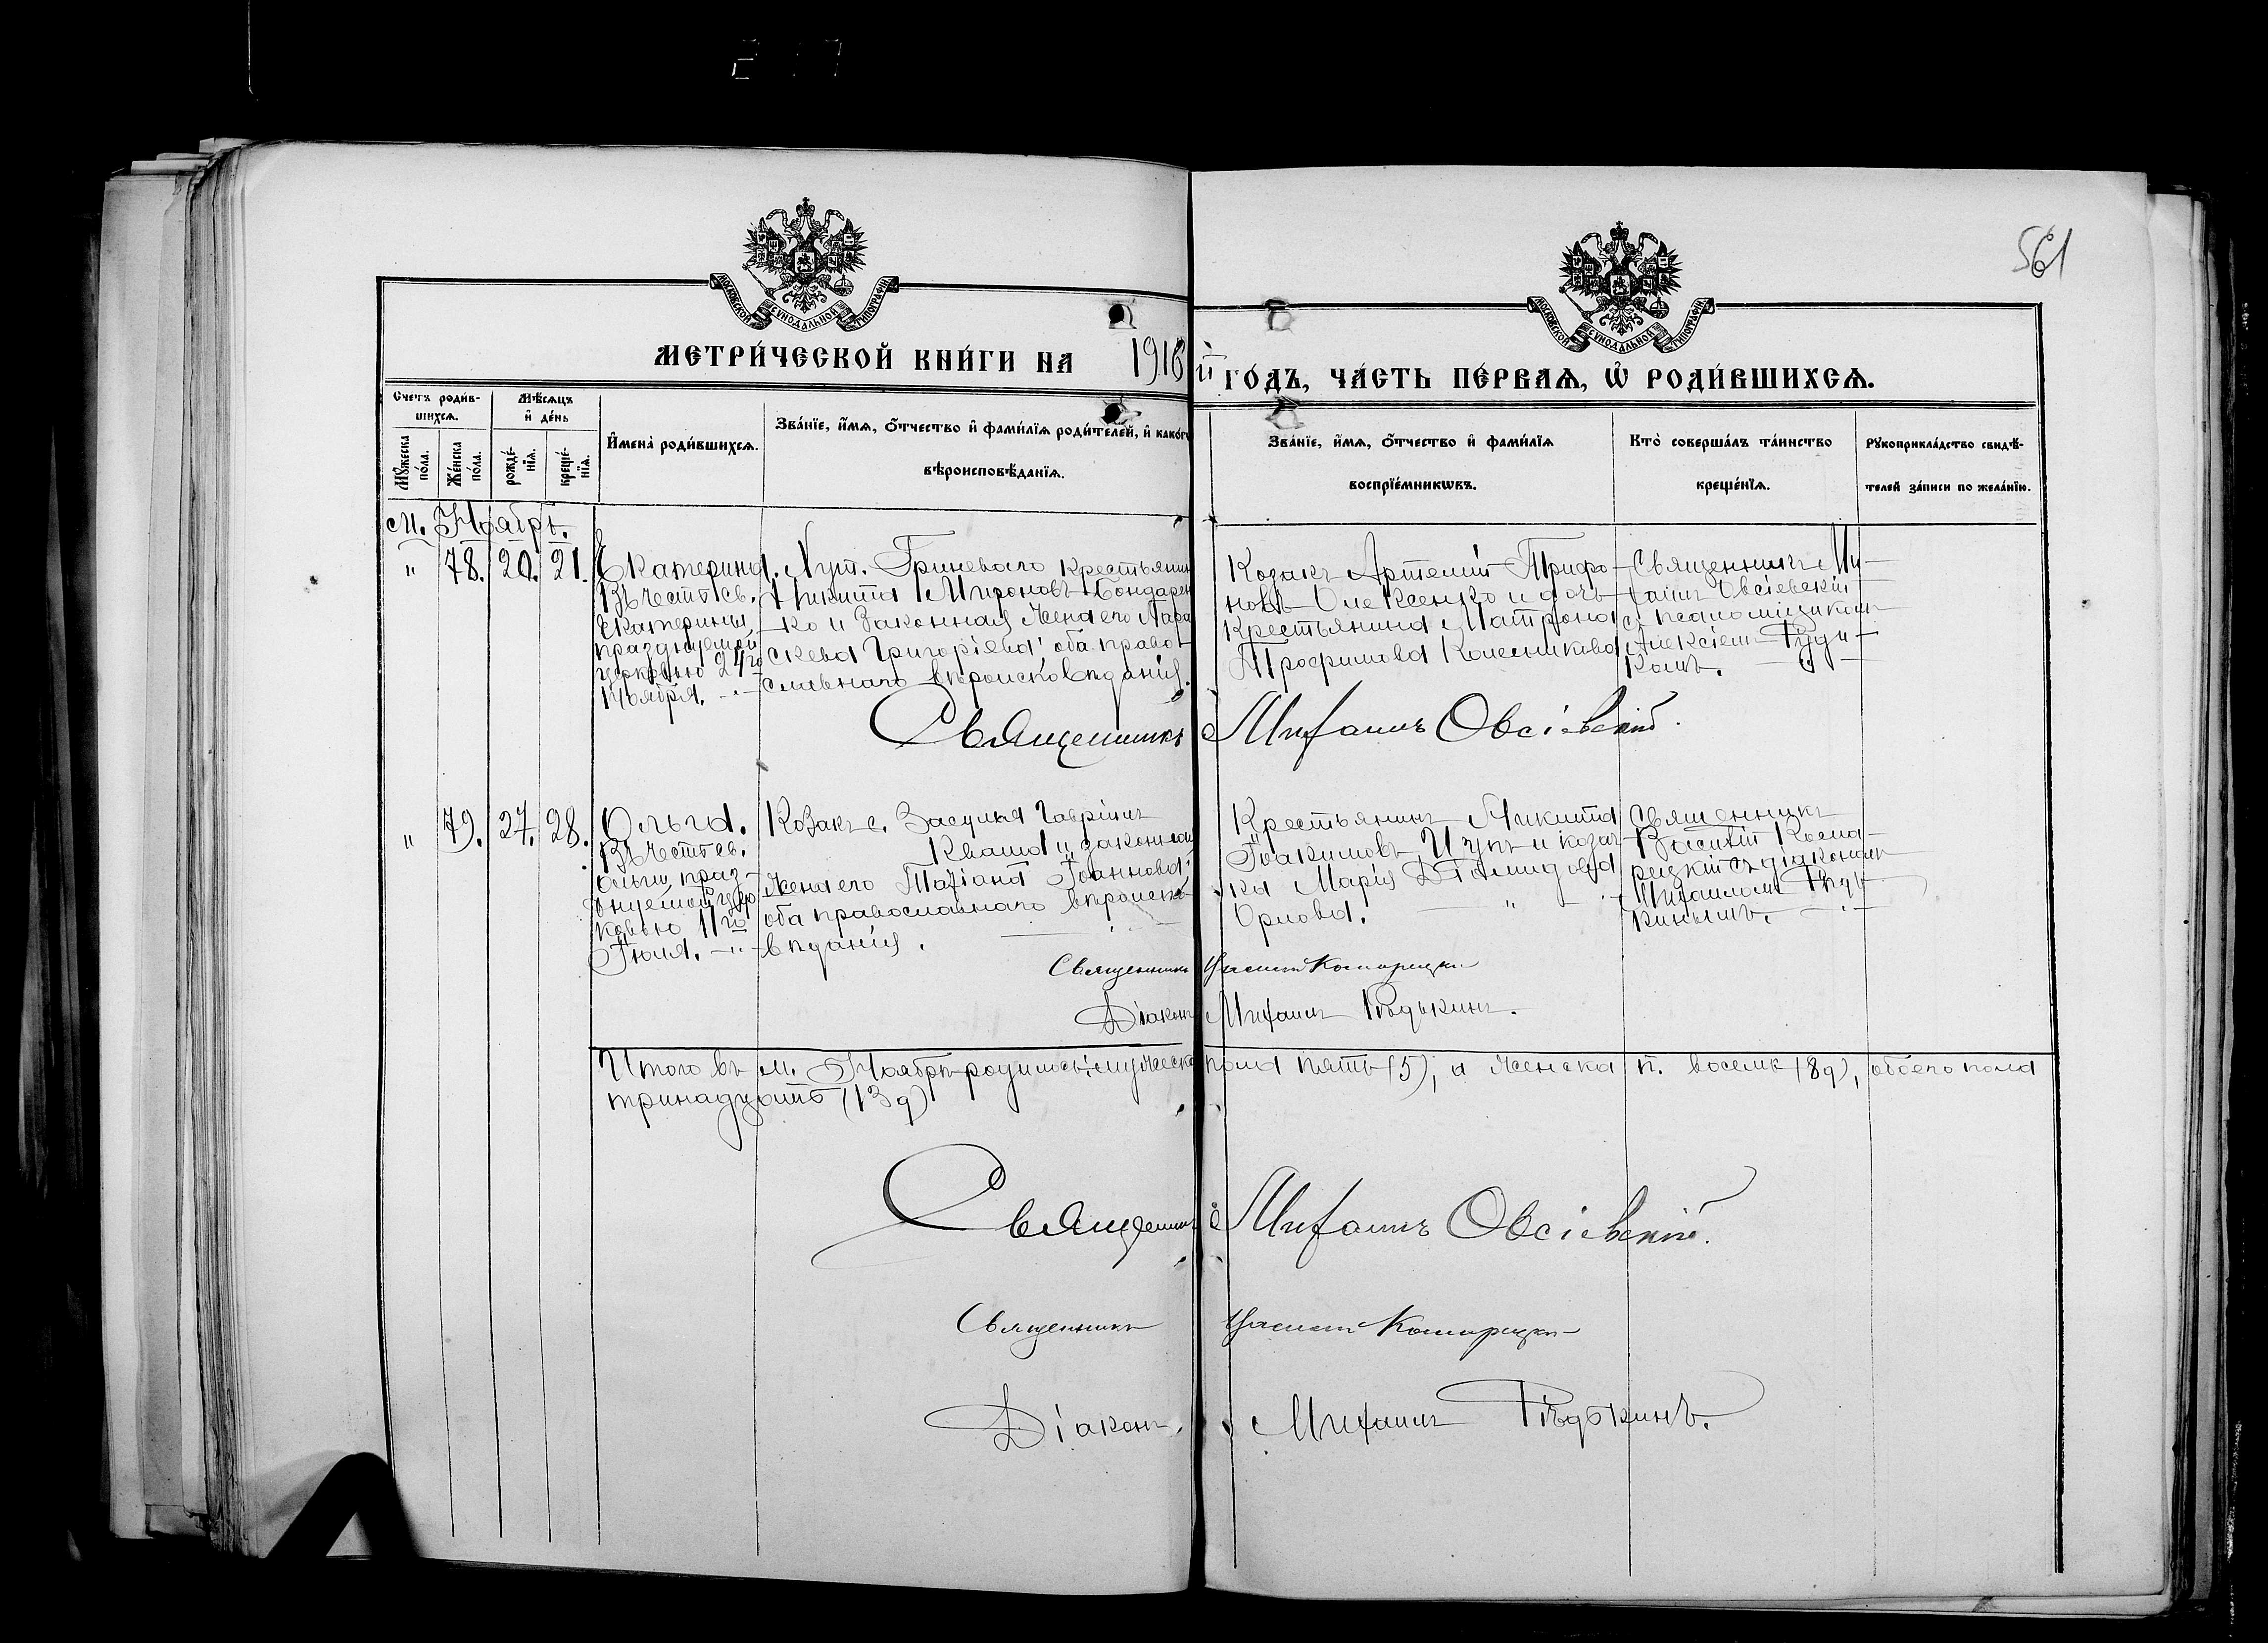 217
561
МОСКОВСКОЙ СУНОДАЛЬНОЙ ТИПОГРАФІИ
МОСКОВСКОЙ СУНОДАЛЬНОЙ ТИПОГРАФІИ
МЕТРИ́ЧЕСКОЙ КНИ́ГИ НА 1916й ГО́ДЪ, ЧА́СТЬ ПЕ́РВАѦ, Ѡ҆ РОДИ́ВШИХСѦ.
Счетъ роди́в-
шихсѧ.
Мѣ́сѧцъ
и҆ де́нь
Мꙋ́жеска
по́ла.
Же́нска
по́ла.
рожде́-
нїѧ.
креще́-
нїѧ.
И҆мена̀ роди́вшихсѧ.
Зва́нїе, и҆́мѧ, ѻ҆́тчество и҆ фами́лїѧ роди́телей, и҆ како́гѡ
вѣроисповѣ́данїѧ.
Зва́нїе, и҆́мѧ, ѻ҆́тчество и҆ фами́лїѧ
воспрїе́мникѡвъ.
Кто̀ соверша́лъ та́инство
креще́нїѧ.
Рꙋкоприкла́дство свидѣ́-
телей за́писи по жела́нїю.
м. Ноябрь.
" 78. 20. 21.
Екатерина.
Въ честь св.
Екатерины,
празднуемой
церковью 24го
Ноября.
Хут. Гриневаго крестьянин
Никита Мироновъ Бондарен
ко и законная жена его Пара
скева Григоріева, оба право
славнаго вѣроисповѣданія.
Козакъ Артемій Трифо-
новъ Олексенко и дочь
крестьянина Матрона
Трофимова Колесникова
Священникъ Ми-
хаилъ Овсіевскій
съ псаломщикомъ
Алексіемъ Руди-
комъ.
Священникъ Михаилъ Овсіевскій.
" 79. 27. 28.
Ольга.
Въ честь св.
Ольги, праз-
днуемой цер-
ковью 11го
Іюля.
Козакъ с. Засулья Гавріилъ
Кваша и законная
жена его Татіана Іоаннова,
оба православнаго вѣроиспо-
вѣданія.
Крестьянинъ Никита
Іоакимовъ и козач-
ка Марія Діомидова
Орлова.
Священникъ
Василій
съ діакономъ
Михаиломъ Рѣдь-
кинымъ.
Священникъ Василій
Діаконъ Михаилъ Рѣдькинъ.
Итого въ м. Ноябрѣ родилось: мужеска пола пять (5), а женска п. восемь (8д), обоего пола
тринадцать (13д)
Священникъ Михаилъ Овсіевскій.
Священникъ Василій
Діаконъ Михаилъ Рѣдькинъ.